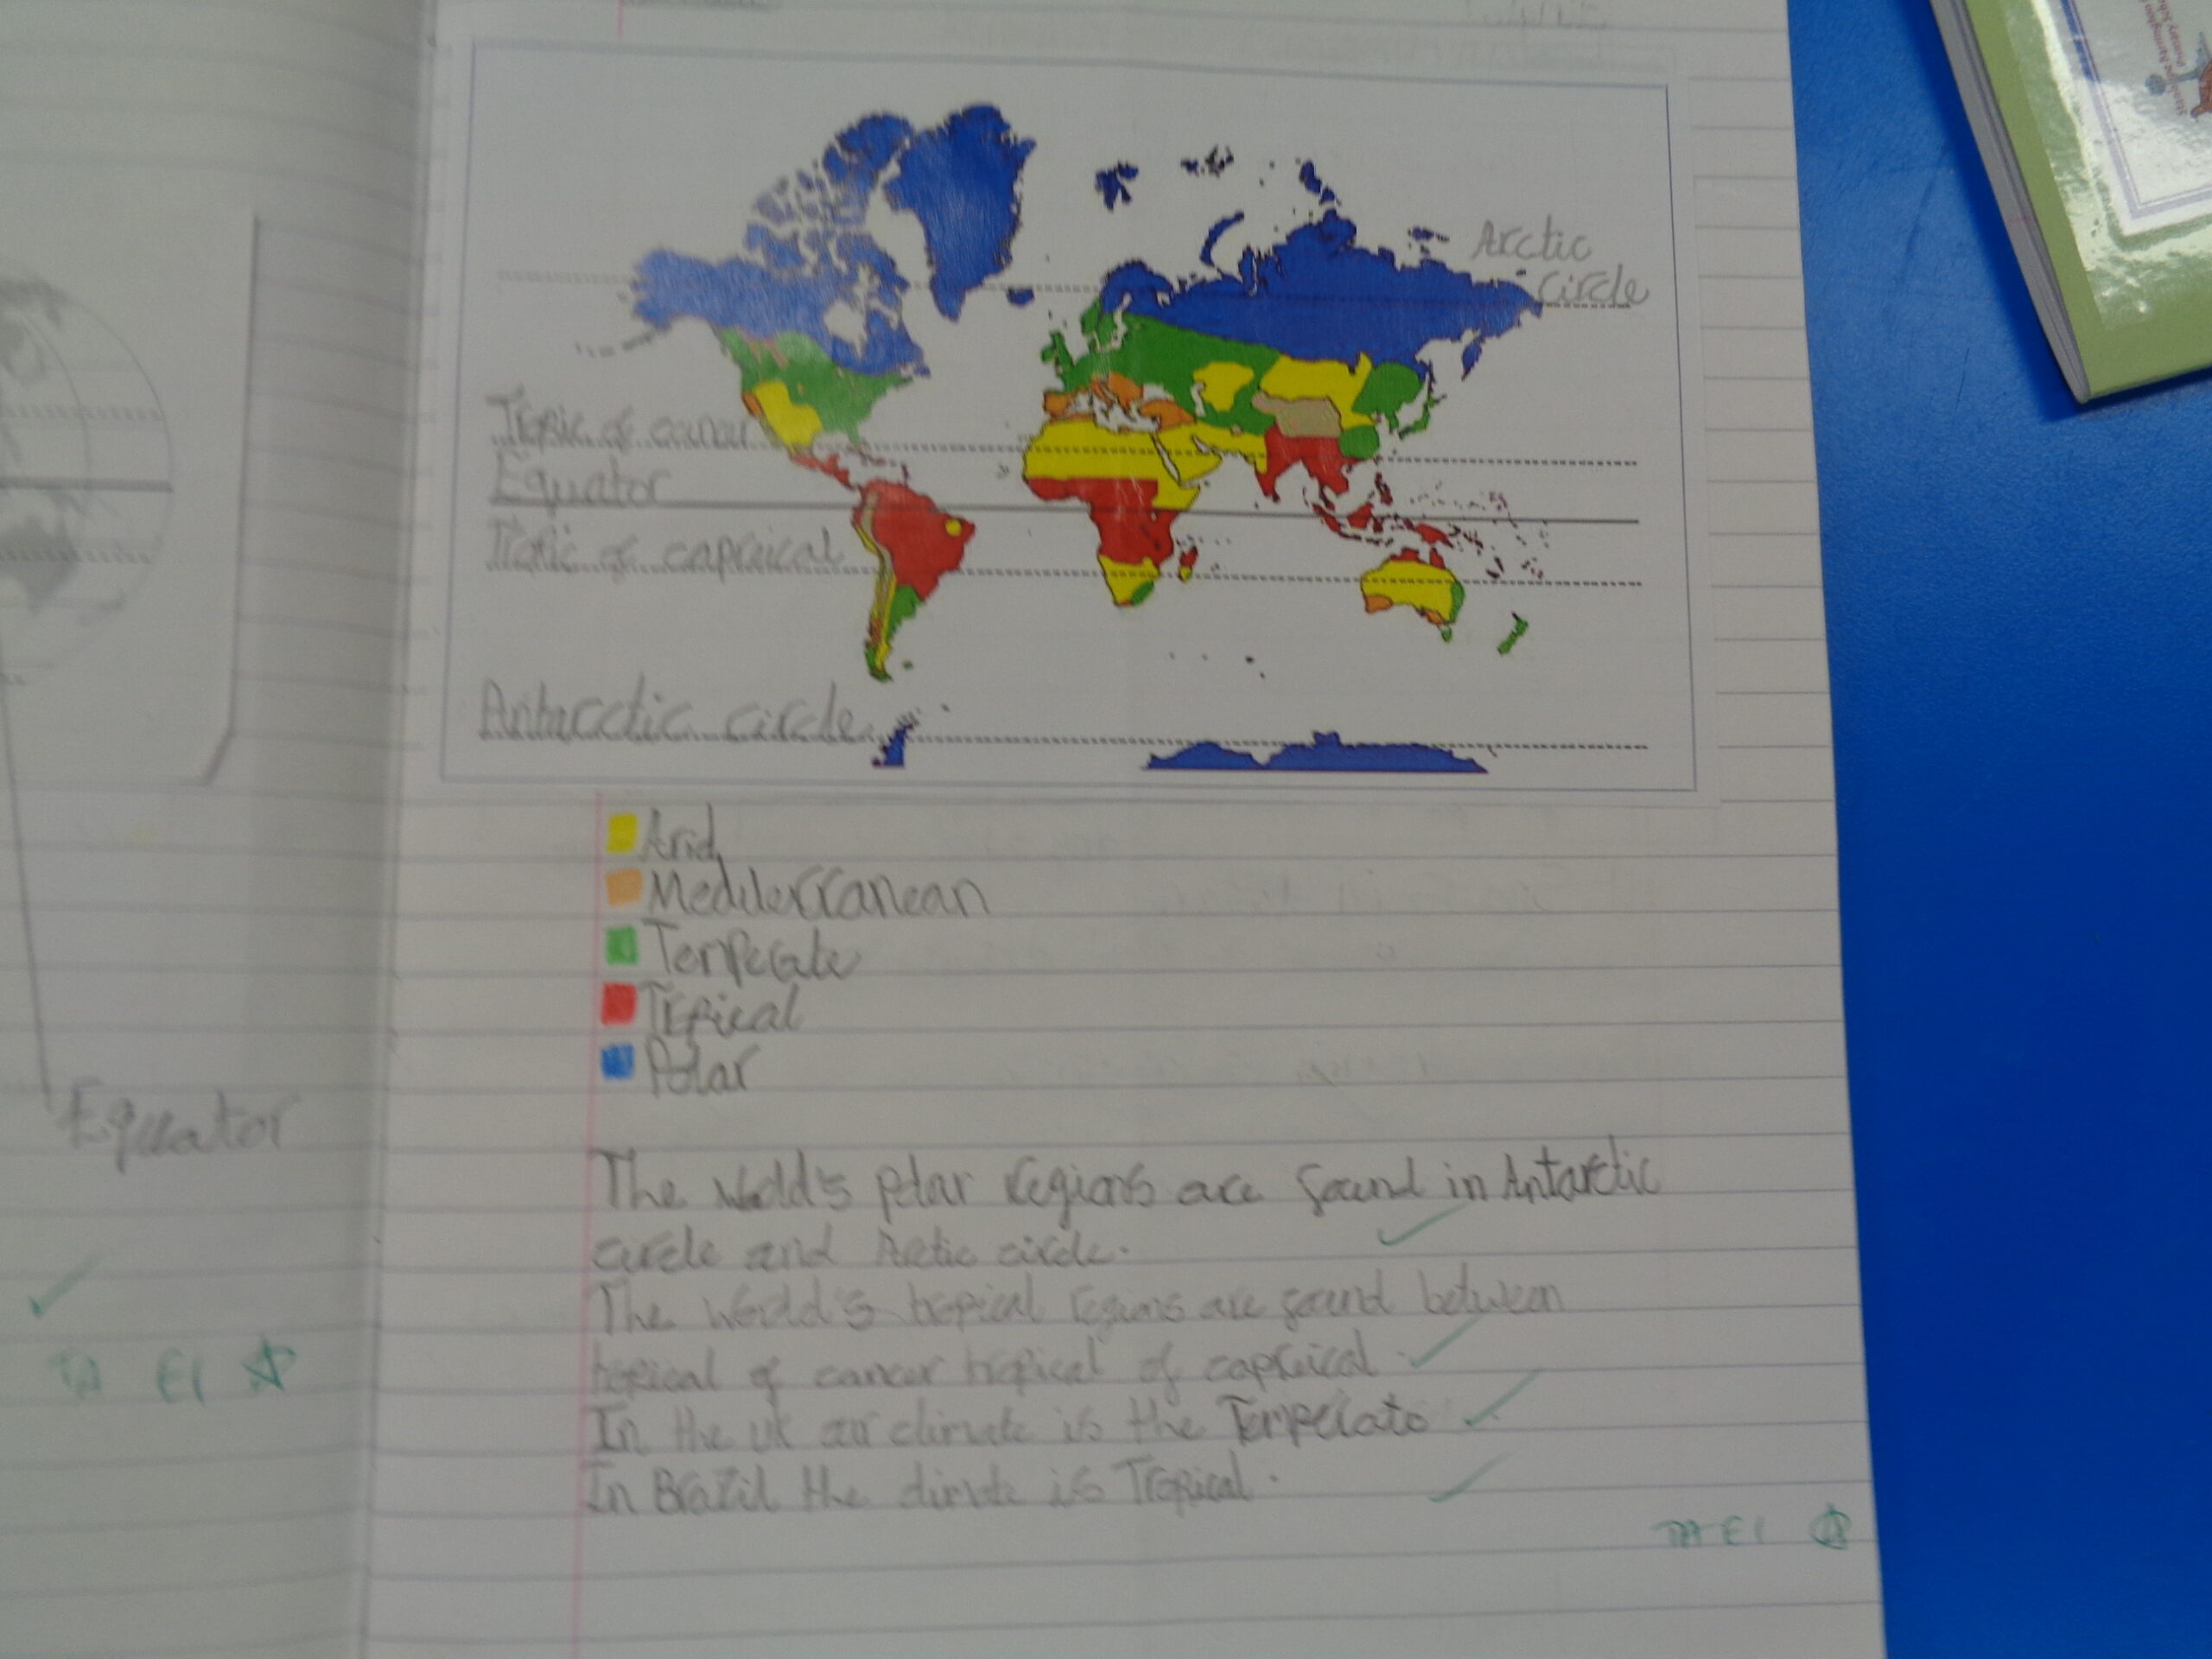 Arctic
circle
Tropic of cancer
Equator
Tropic of capraical
Antarcctic circle
Arid
Mediterranean
Temperate
Tropical
Polar
Equator
The world's polar regions are found in Antarctic
circle and Arctic circle.
The world's tropical regions are found between
tropical of cancer tropical of capraical.
In the uk our climate is the Temperate
In Brazil the climate is Tropical.
TA EI
TA EI